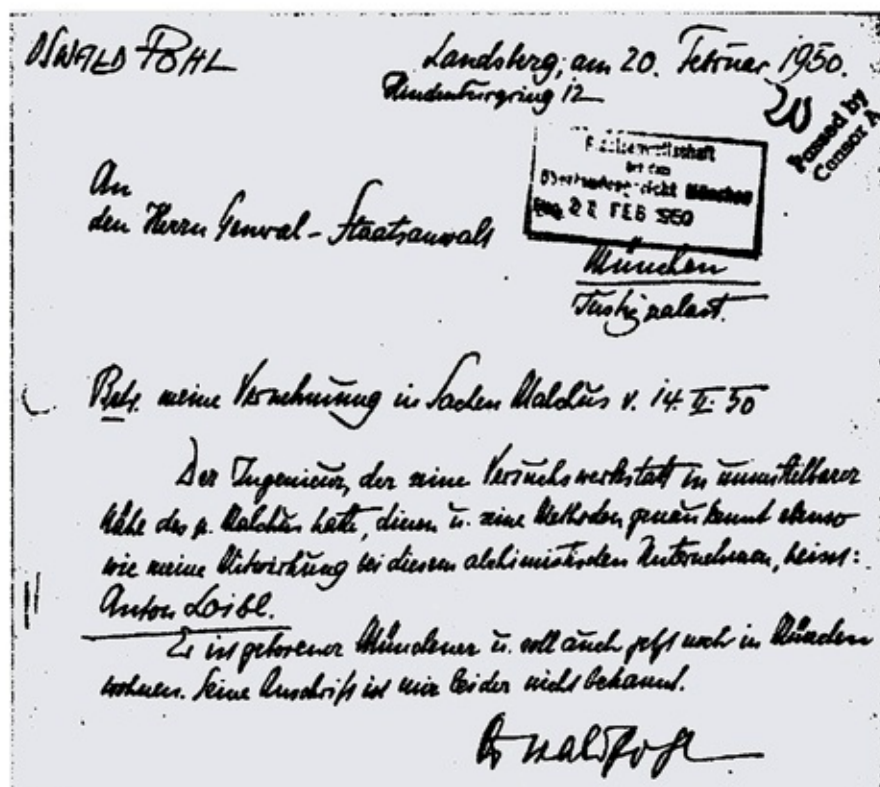 OSWALD POHL
Landsberg, am 20. Februar 1950.
Hindenburgring 12
20
Passed by
Censor A
Staatsanwaltschaft
bei dem
Oberlandesgericht München
Eing. 22 FEB 1950
An
den Herrn General-Staatsanwalt
München
Justizpalast.
Betr. meine Vernehmung in Sachen Malchus v. 14. II. 50
Der Ingenieur, der seine Versuchswerkstatt in unmittelbarer
Nähe des p. Malchus hatte, diesen u. seine Methoden genau kennt ebenso
wie meine Mitwirkung bei diesem alchimistischen Unternehmen, heisst:
Anton Loibl.
Er ist geborener Münchener u. soll auch jetzt noch in München
wohnen. Seine Anschrift ist mir leider nicht bekannt.
Oswald Pohl